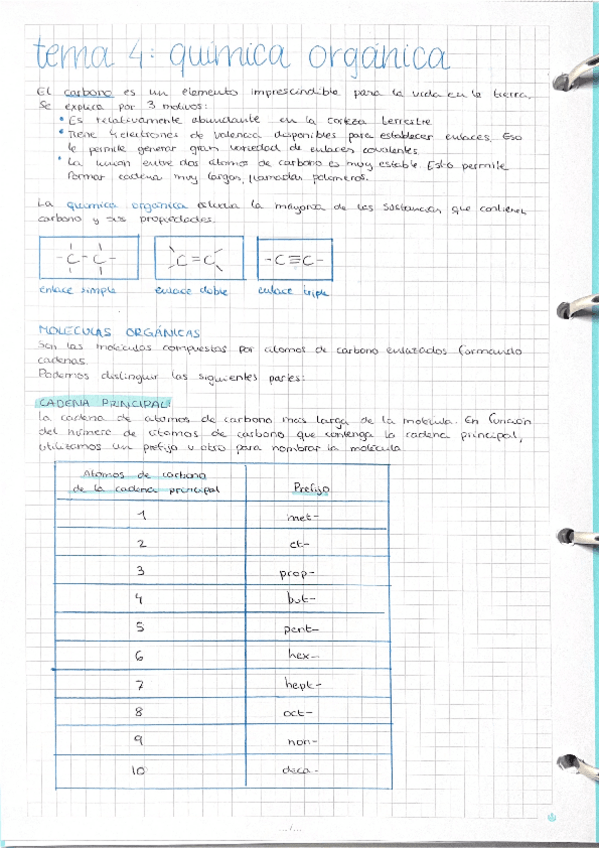 tema 4: química orgánica
El carbono es un elemento imprescindible para la vida en la tierra.
Se explica por 3 motivos:
• Es relativamente abundante en la corteza terrestre
• Tiene 4 electrones de valencia disponibles para establecer enlaces. Eso
le permite generar gran variedad de enlaces covalentes.
• La unión entre dos átomos de carbono es muy estable Esto permite
formar cadena muy largas, llamadas polímeros.
La química orgánica estudia la mayoría de las sustancias que contienen
carbono y sus propiedades.
-C-C-
C=C
-C≡C-
enlace simple enlace doble enlace triple
MOLECULAS ORGÁNICAS
Son las moléculas compuestas por átomos de carbono enlazados formando
cadenas.
Podemos distinguir las siguientes partes:
CADENA PRINCIPAL:
La cadena de átomos de carbono más larga de la molécula. En función
del número de átomos de carbono que contenga la cadena principal,
utilizamos un prefijo u otro para nombrar la molécula
Átomos de carbono
de la cadena principal Prefijo
1 met-
2 et-
3 prop-
4 but-
5 pent-
6 hex-
7 hept-
8 oct-
9 non-
10 deca-
.../...